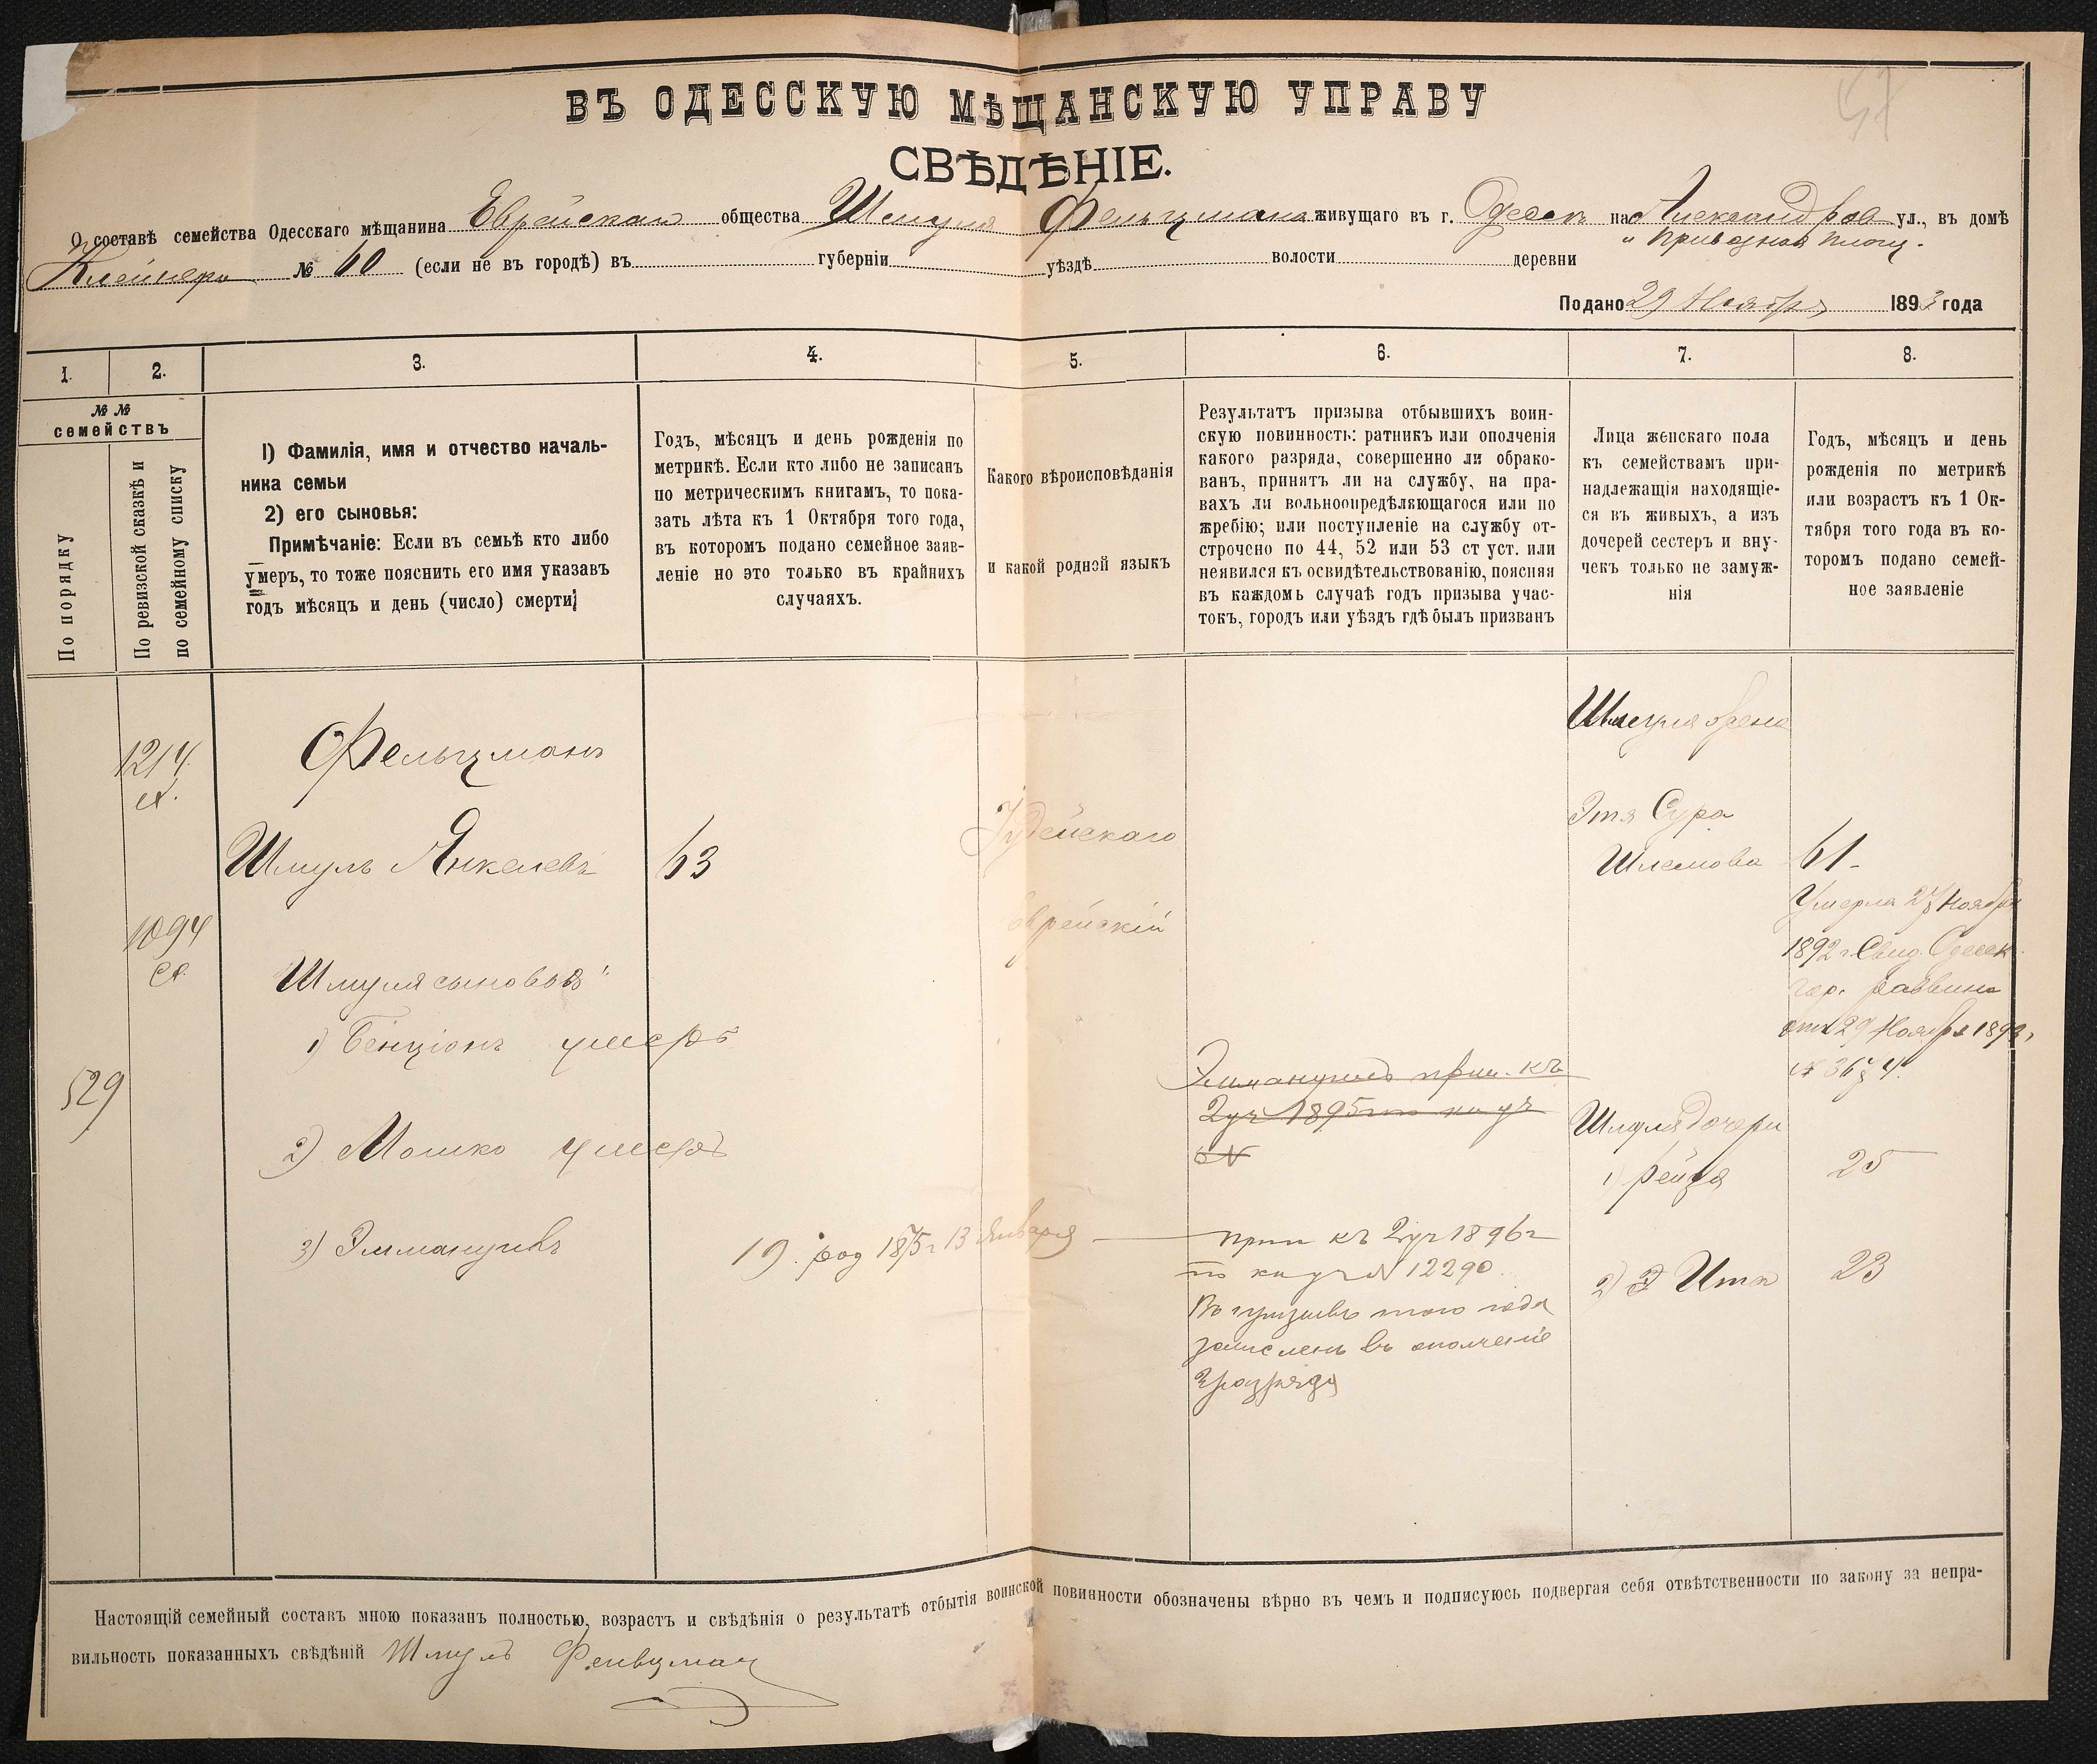 ВЪ ОДЕССКУЮ МѢЩАНСКУЮ УПРАВУ
СВѢДѢНІЕ.
О составѣ семейства Одесскаго мѣщанина Еврейскаго общества Шмуля Фельцмана живущаго въ г. Одессѣ на Александров ул., въ домѣ
и Привозная площ.
Клейнера № 60 (если не въ городѣ) въ губерніи уѣздѣ волости деревни
Подано 29 Ноября 1893 года
1. 2. 3. 4. 5. 6. 7. 8.
№ № семействъ
По порядку
По ревизской сказкѣ и
по семейному списку
1) Фамилія, имя и отчество началь-
ника семьи
2) его сыновья:
Примѣчаніе: Если въ семьѣ кто либо
умеръ, то тоже пояснить его имя указавъ
годъ мѣсяцъ и день (число) смерти;
Годъ, мѣсяцъ и день рожденія по
метрикѣ. Если кто либо не записанъ
по метрическимъ книгамъ, то пока-
зать лѣта къ 1 Октября того года,
въ которомъ подано семейное заяв-
леніе но это только въ крайнихъ
случаяхъ.
Какого вѣроисповѣданія
и какой родной языкъ
Результатъ призыва отбывшихъ воин-
скую повинность: ратникъ или ополченія
какого разряда, совершенно ли обрако-
ванъ, принятъ ли на службу, на пра-
вахъ ли вольноопредѣляющагося или по
жребію; или поступленіе на службу от-
строчено по 44, 52 или 53 ст уст. или
неявился къ освидѣтельствованію, поясняя
въ каждомъ случаѣ годъ призыва учас-
токъ, городъ или уѣздъ гдѣ былъ призванъ
Лица женскаго пола
къ семействамъ при-
надлежащія находящіе-
ся въ живыхъ, а изъ
дочерей сестеръ и вну-
чекъ только не замуж-
нія
Годъ, мѣсяцъ и день
рожденія по метрикѣ
или возрастъ къ 1 Ок-
тября того года въ ко-
торомъ подано семей-
ное заявленіе
529
1214
1094
Фельцманъ
Шмуль Янкелевъ 63
Шмуля сыновья
1) Бенціонъ умеръ
2) Мошко умеръ
3) Эммануилъ 19. род 1875 г 13 Января
Іудейскаго
Еврейскій
Эммануилъ прип. къ
2 уч 1895 г по кн уч
№
прип къ 2 уч 1896 г
по кн уч № 12290
Въ призывѣ того года
зачисленъ въ ополченіе
разряда
Шмуля жена
Этя Сура
Шлемова 61
Умерла 27 Ноября
1892 г. Свид. Одесск.
гор. раввина
отъ 29 Ноября 1892 г
№ 3674.
Шмуля дочери
1) Рейзя 25
2) Э Итя 23
Настоящій семейный составъ мною показанъ полностью, возрастъ и свѣдѣнія о результатѣ отбытія воинской повинности обозначены вѣрно въ чемъ и подписуюсь подвергая себя отвѣтственности по закону за непра-
вильность показанныхъ свѣдѣній Шмуль Фельцман